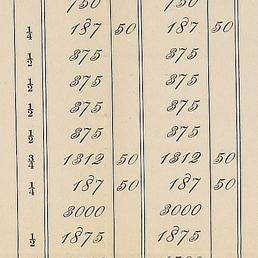 750 750
1/4 187 50 187 50
1/2 375 375
1/2 375 375
1/2 375 375
1/2 375 375
3/4 1312 50 1312 50
1/4 187 50 187 50
3000 3000
1/2 1875 1875